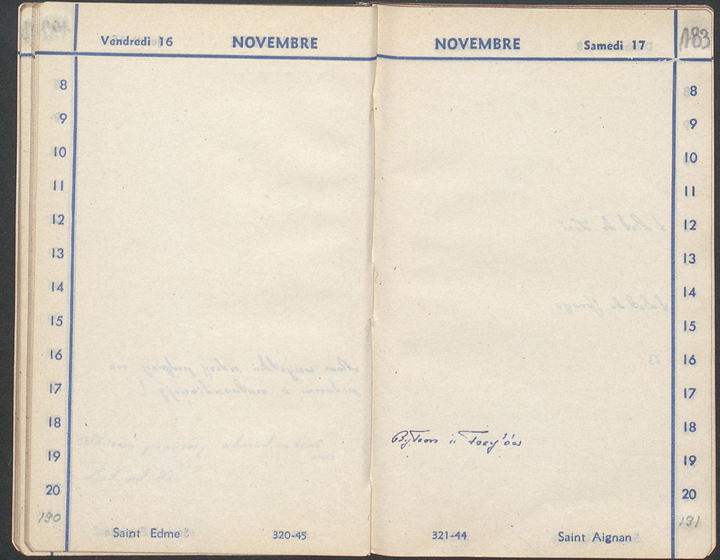 Vendredi 16 NOVEMBRE
8
9
10
11
12
13
14
15
16
17
18
19
20
190
Saint Edme 320-45
NOVEMBRE Samedi 17
183
8
9
10
11
12
13
14
15
16
17
18
19
20
191
321-44 Saint Aignan